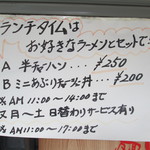 ランチタイムは
お好きなラーメンとセットで…
A 半チャーハン… ¥250
Bミニあぶりチャーシュー丼… ¥200
※AM11:00〜14:00まで
又月〜土 日替わりサービス有り
※AM11:00〜17:00まで